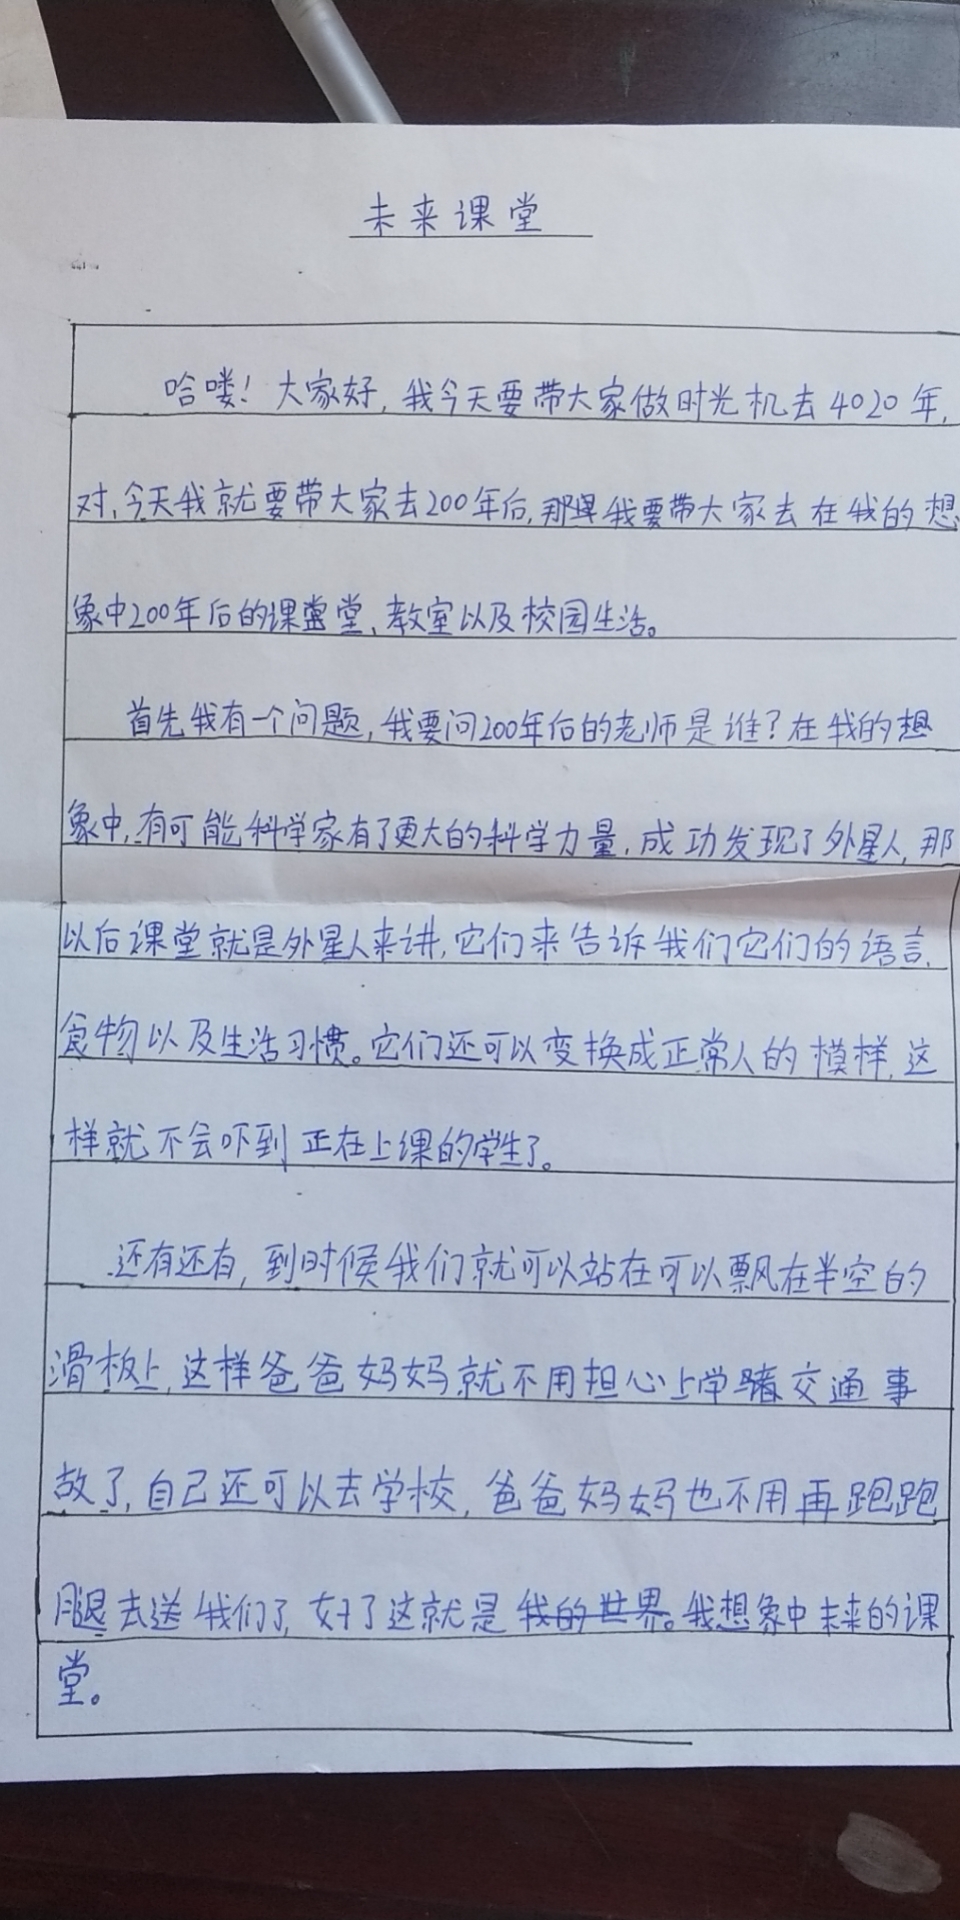 未来课堂
哈喽！大家好，我今天要带大家做时光机去4020年，
对，今天我就要带大家去200年后，那里我要带大家去在我的想
象中200年后的课堂、教室以及校园生活。
首先我有一个问题，我要问200年后的老师是谁？在我的想
象中，有可能科学家有了更大的科学力量，成功发现了外星人，那
以后课堂就是外星人来讲，它们来告诉我们它们的语言、
食物以及生活习惯。它们还可以变换成正常人的模样，这
样就不会吓到正在上课的学生了。
还有还有，到时候我们就可以站在可以飘在半空的
滑板上，这样爸爸妈妈就不用担心上学路交通事
故了，自己还可以去学校，爸爸妈妈也不用再跑跑
腿去送我们了，好了这就是我的世界。我想象中未来的课
堂。